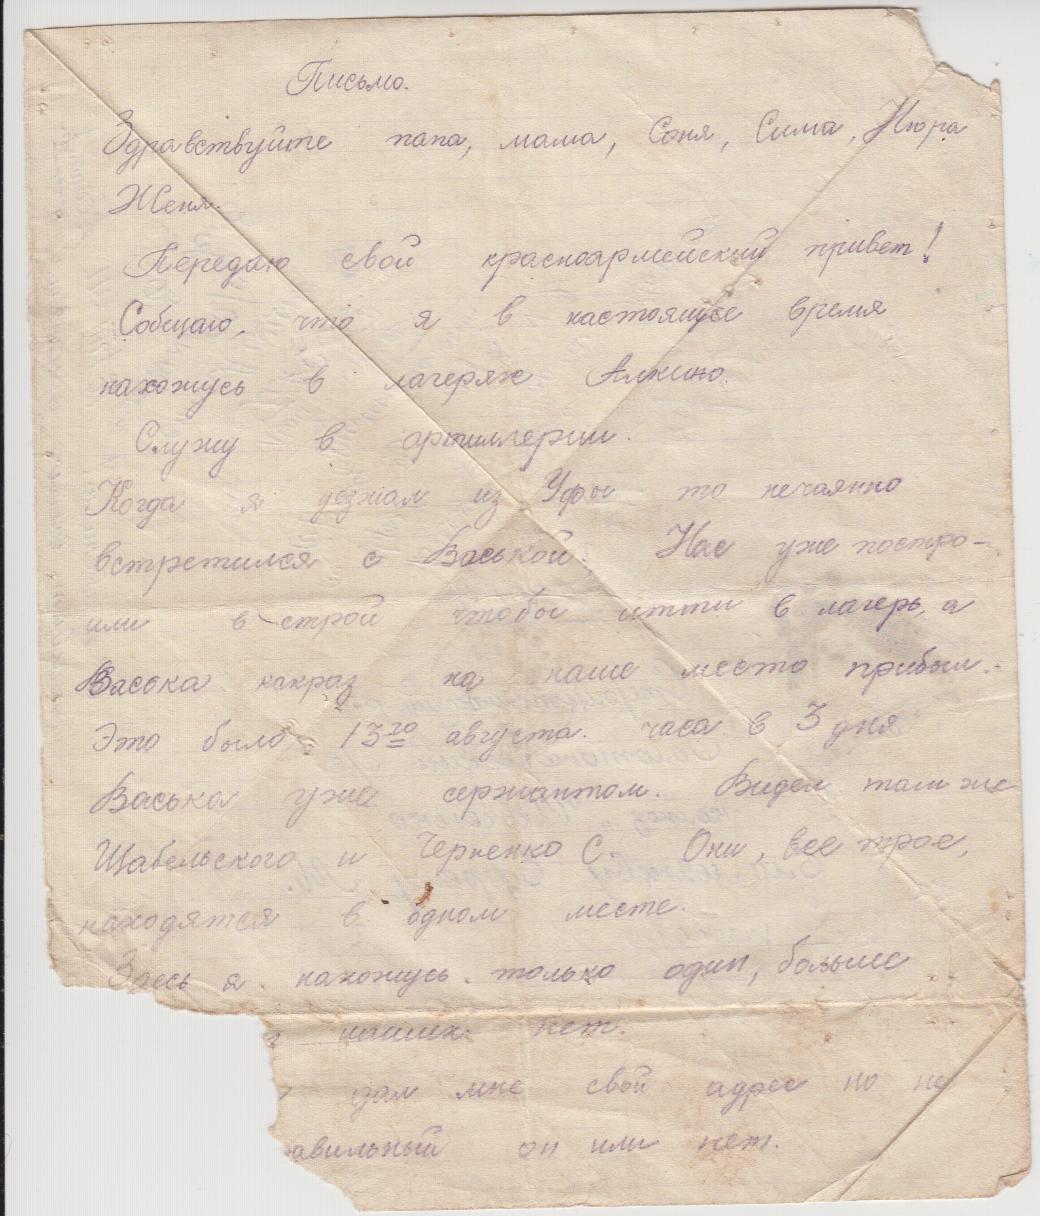 Письмо.
Здравствуйте папа, мама, Соня, Сима, Нюра
Женя.
Передаю свой красноармейский привет!
Собщаю, что я в настоящее время
нахожусь в лагерях Алкино.
Служу в артиллерии.
Когда я уезжал из Уфы то нечаянно
встретился с Васькой. Нас уже постро-
или в строй чтобы итти в лагерь, а
Васька какраз на наше место прибыл.
Это было 13го августа. часа в 3 дня
Васька уже сержантом. Видел там же
Щабельского и Черненко С. Они, все трое,
находятся в одном месте.
Здесь я нахожусь только один, больше
наших нет.
дал мне свой адрес но не
авильный он или нет.